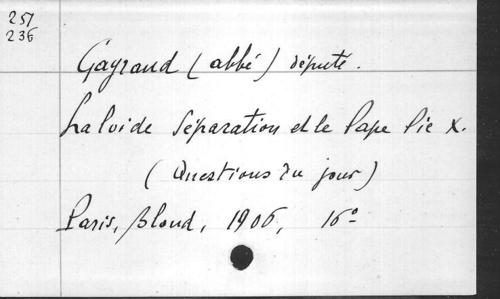 257
236
Gayraud (abbé) député.
La loi de Séparation et le Pape Pie X.
(Questions du jour)
Paris, Bloud, 1906, 16°